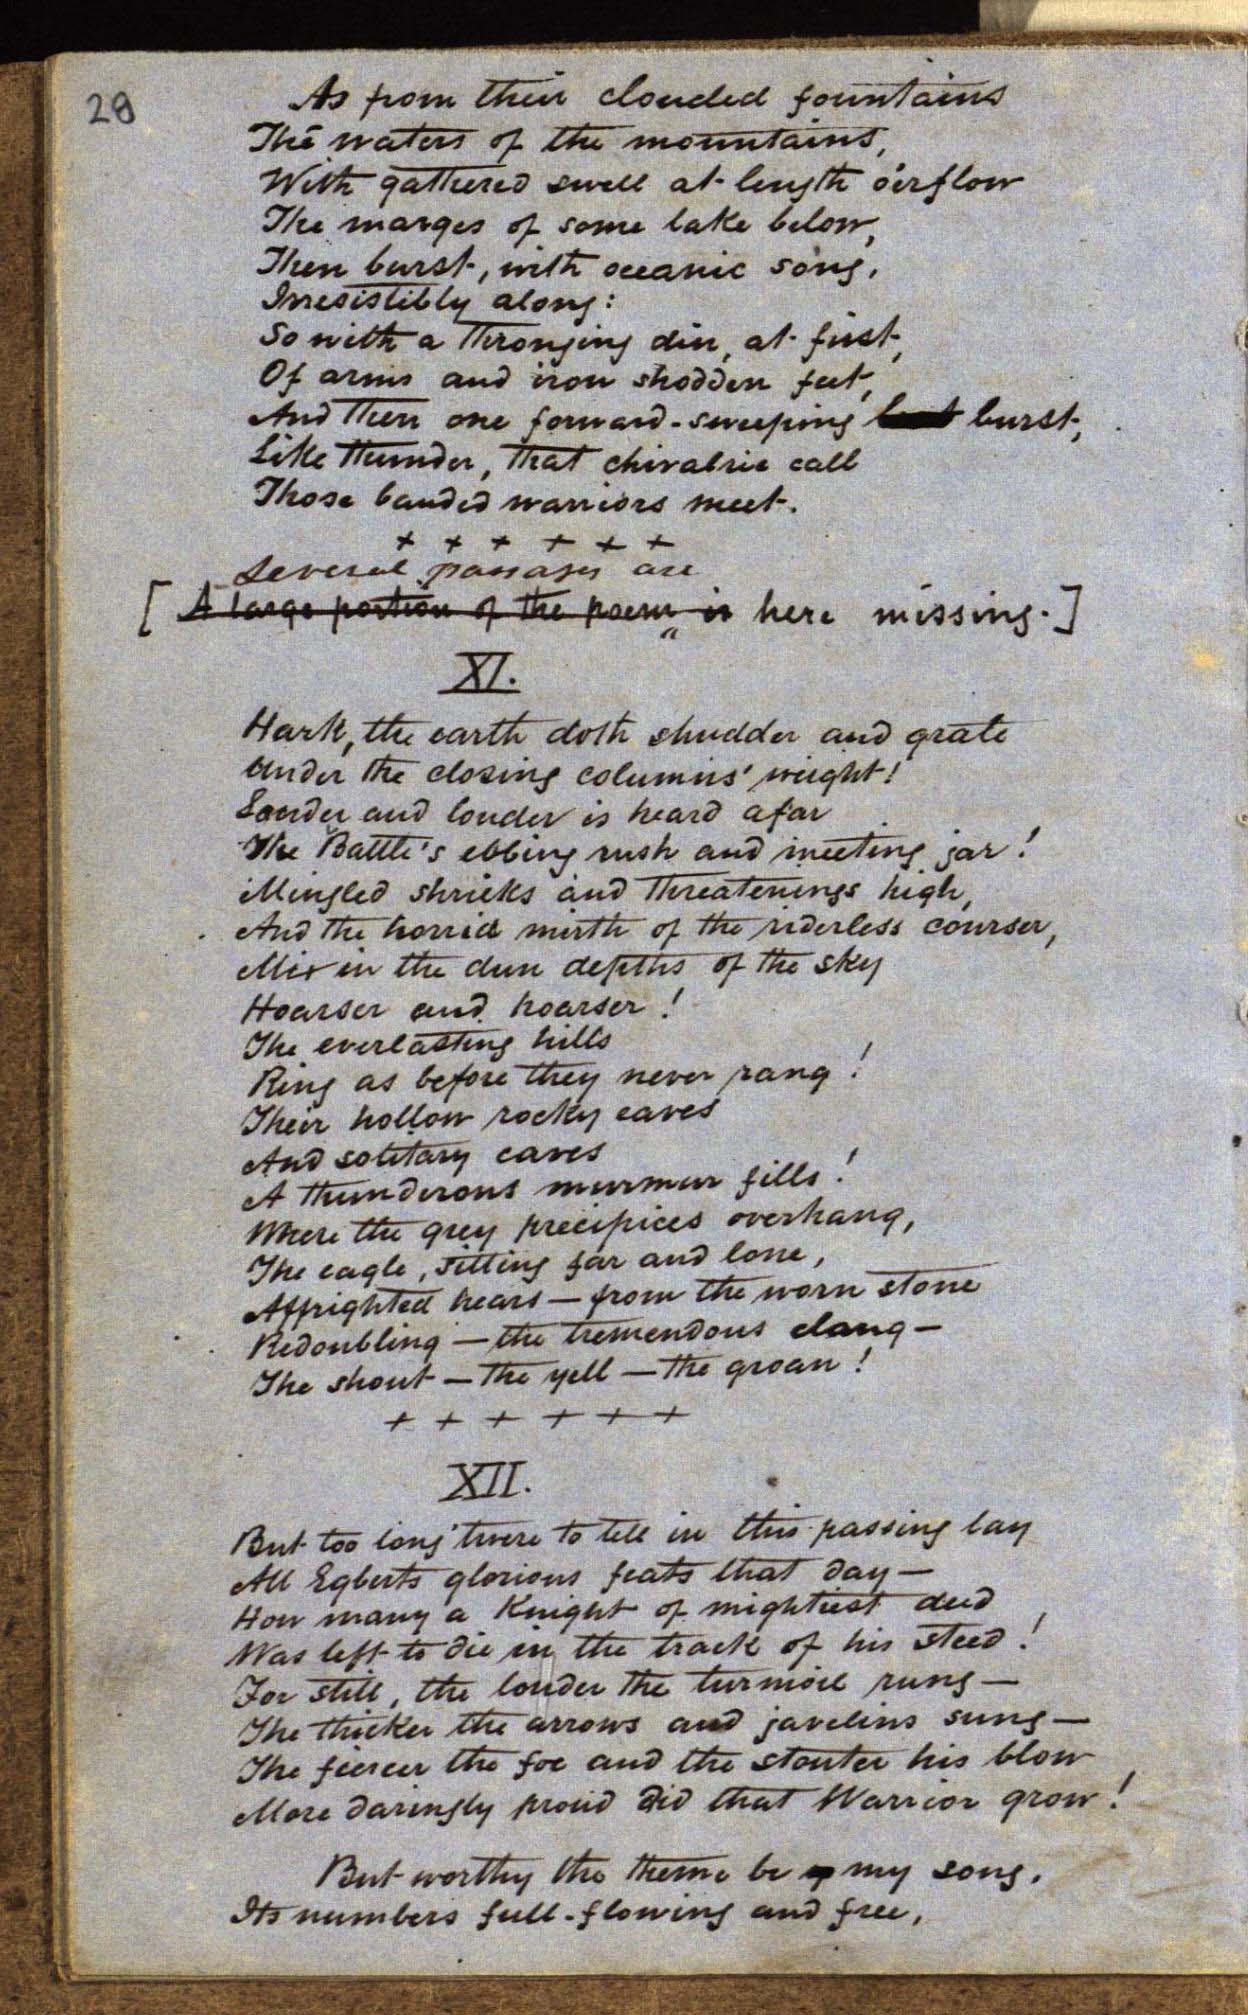 28
As from their clouded fountains
The waters of the mountains,
With gathered swell at length o'erflow
The marges of some lake below,
Then burst, with oceanic song,
Irresistibly along:
So with a thronging din, at first,
Of arms and iron shodden feet,
And then one forward-sweeping burst,
Like thunder, that chivalric call
Those banded warriors meet.
+ + + + + +
Several passages are
[ A large portion of the poem is here missing. ]
XI.
Hark, the earth doth shudder and grate
Under the closing columns' weight!
Louder and louder is heard afar
The Battle's ebbing rush and meeting jar!
Mingled shrieks and threatenings high,
And the horrid mirth of the riderless courser,
Mix in the dun depths of the sky
Hoarser and hoarser!
The everlasting hills
Ring as before they never rang!
Their hollow rocky caves
And solitary caves
A thunderous murmur fills!
Where the grey precipices overhang,
The eagle, sitting far and lone,
Affrighted hears — from the worn stone
Redoubling — the tremendous clang —
The shout — the yell — the groan!
+ + + + + +
XII.
But too long 'twere to tell in this passing lay
All Egberts glorious feats that day —
How many a Knight of mightiest deed
Was left to die in the track of his steed!
For still, the louder the turmoil rung —
The thicker the arrows and javelins sung —
The fiercer the foe and the stouter his blow
More daringly proud did that Warrior grow!
But worthy the theme be my song,
Its numbers full-flowing and free,